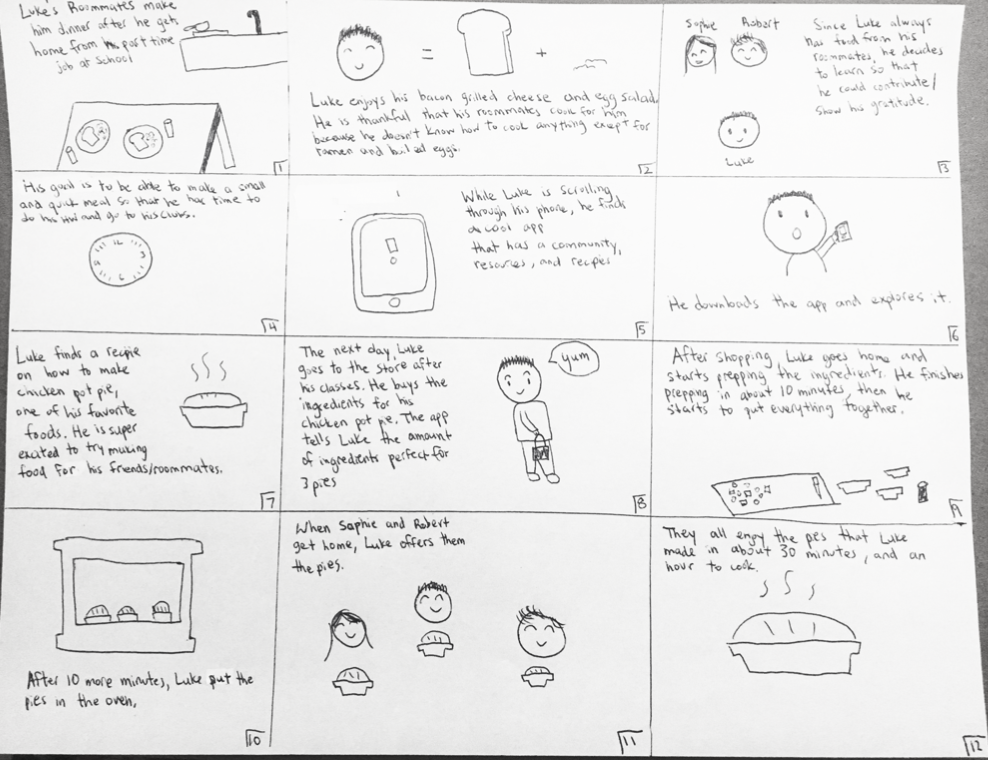 Luke's Roommates make
him dinner after he gets
home from his part time
job at school
1
=
+
Luke enjoys his bacon grilled cheese and egg salad.
He is thankful that his roommates cook for him
because he doesn't know how to cook anything except for
ramen and boiled eggs.
2
Sophie Robert
Since Luke always
has food from his
roommates, he decides
to learn so that
he could contribute/
show his gratitude.
Luke
3
His goal is to be able to make a small
and quick meal so that he has time to
do his HW and go to his clubs.
12
9 3
6
4
While Luke is scrolling
through his phone, he finds
a cool app
that has a community,
resources, and recipes
!
5
He downloads the app and explores it.
6
Luke finds a recipie
on how to make
chicken pot pie,
one of his favorite
foods. He is super
excited to try making
food for his friends/roommates.
7
The next day, Luke
goes to the store after
his classes. He buys the
ingredients for his
chicken pot pie. The app
tells Luke the amount
of ingredients perfect for
3 pies
yum
8
After shopping, Luke goes home and
starts prepping the ingredients. He finishes
prepping in about 10 minutes, then he
starts to put everything together.
9
After 10 more minutes, Luke put the
pies in the oven,
10
When Sophie and Robert
get home, Luke offers them
the pies.
11
They all enjoy the pies that Luke
made in about 30 minutes, and an
hour to cook.
12